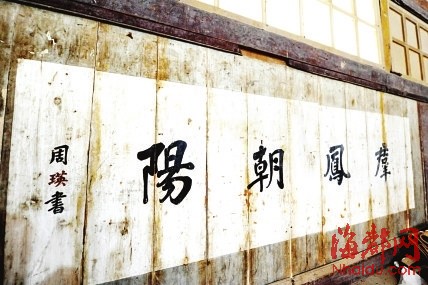 羣鳳朝陽
周瑛書
海都网
Nhaidu.com